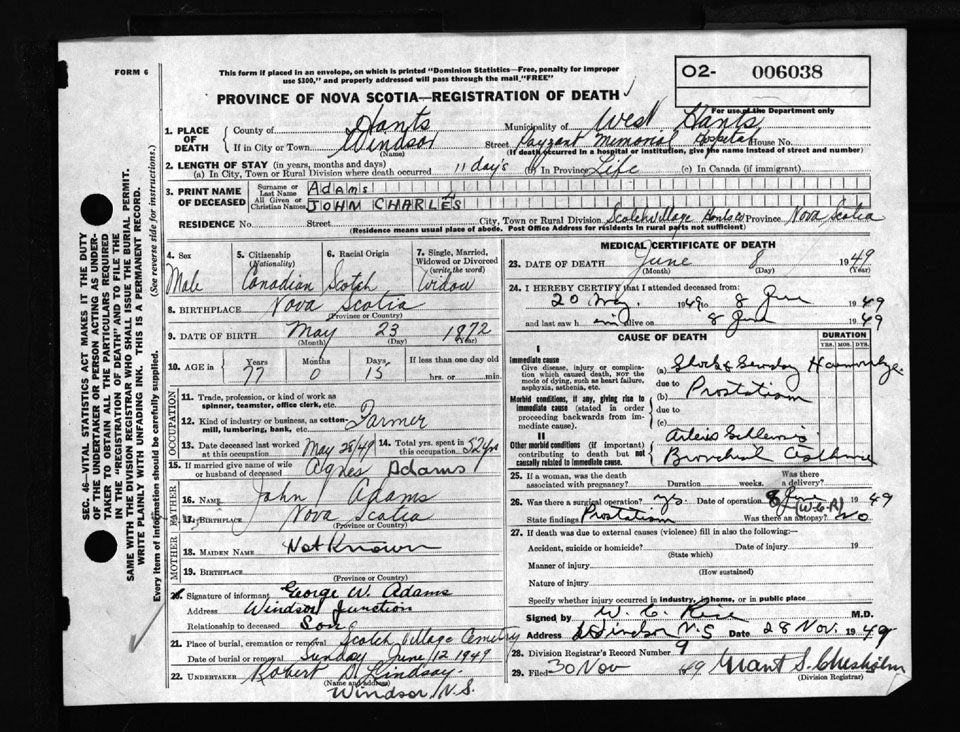 FORM 6
This form if placed in an envelope, on which is printed "Dominion Statistics—Free, penalty for improper
use $300," and properly addressed will pass through the mail "FREE"
O2- 006038
PROVINCE OF NOVA SCOTIA—REGISTRATION OF DEATH
For use of the Department only
1. PLACE OF DEATH
County of Hants Municipality of West Hants
If in City or Town Windsor Street Payzant Memorial Hospital House No.
(Name) (If death occurred in a hospital or institution, give the name instead of street and number)
2. LENGTH OF STAY (in years, months and days)
(a) In City, Town or Rural Division where death occurred 11 days (b) In Province Life (c) In Canada (if immigrant)
3. PRINT NAME OF DECEASED
Surname or Last Name Adams
All Given or Christian Names JOHN CHARLES
RESIDENCE No. Street City, Town or Rural Division Scotch Village Hants Co Province Nova Scotia
(Residence means usual place of abode. Post Office Address for residents in rural parts not sufficient)
SEC. 46—VITAL STATISTICS ACT MAKES IT THE DUTY
OF THE UNDERTAKER OR PERSON ACTING AS UNDER-
TAKER TO OBTAIN ALL THE PARTICULARS REQUIRED
IN THE "REGISTRATION OF DEATH" AND TO FILE THE
SAME WITH THE DIVISION REGISTRAR WHO SHALL ISSUE THE BURIAL PERMIT.
WRITE PLAINLY WITH UNFADING INK. THIS IS A PERMANENT RECORD.
Every item of information should be carefully supplied. (See reverse side for instructions.)
4. Sex Male
5. Citizenship (Nationality) Canadian
6. Racial Origin Scotch
7. Single, Married, Widowed or Divorced (write the word) Widow
8. BIRTHPLACE Nova Scotia
(Province or Country)
9. DATE OF BIRTH May 23 1872
(Month) (Day) (Year)
10. AGE in Years 77 Months 0 Days 15 If less than one day old
hrs. or min.
OCCUPATION
11. Trade, profession, or kind of work as
spinner, teamster, office clerk, etc.
12. Kind of industry or business, as cotton-
mill, lumbering, bank, etc. Farmer
13. Date deceased last worked at this occupation May 28/49 14. Total yrs. spent in this occupation 52 yrs
15. If married give name of wife or husband of deceased Agnes Adams
FATHER
16. Name John Adams
17. Birthplace Nova Scotia
(Province or Country)
MOTHER
18. MAIDEN NAME Not Known
19. BIRTHPLACE
(Province or Country)
20. Signature of informant George W. Adams
Address Windsor Junction
Relationship to deceased Son
21. Place of burial, cremation or removal Scotch Village Cemetery
Date of burial or removal Sunday June 12 1949
22. UNDERTAKER Robert D. Lindsay
(Name and address)
Windsor N.S.
MEDICAL CERTIFICATE OF DEATH
23. DATE OF DEATH June 8 1949
(Month) (Day) (Year)
24. I HEREBY CERTIFY that I attended deceased from:
20 1949 to 8 June 1949
and last saw h im alive on 8 June 1949
CAUSE OF DEATH DURATION
YRS. MOS. DYS.
I
Immediate cause
Give disease, injury or complica-
tion which caused death, not the
mode of dying, such as heart failure,
asphyxia, asthenia, etc.
(a) Shock & Secondary Haemorrhage
due to
Morbid conditions, if any, giving rise to
immediate cause (stated in order
proceeding backwards from im-
mediate cause).
(b) Prostatism
due to
(c)
II
Other morbid conditions (if important)
contributing to death but not
causally related to immediate cause.
Arterio Sclerosis
Bronchial Asthma
25. If a woman, was the death associated with pregnancy? Duration weeks. Was there a delivery?
26. Was there a surgical operation? yes. Date of operation 8 June 1949
(W.C.R)
State findings Prostatism Was there an autopsy? no
27. If death was due to external causes (violence) fill in also the following:—
Accident, suicide or homicide? Date of injury 19
(State which)
Manner of injury
(How sustained)
Nature of injury
Specify whether injury occurred in industry, in home, or in public place
Signed by W. C. Rice M.D.
Address Windsor N.S Date 28 Nov. 1949
28. Division Registrar's Record Number 9
29. Filed 30 Nov 49 Grant S. Chesholm
(Division Registrar)